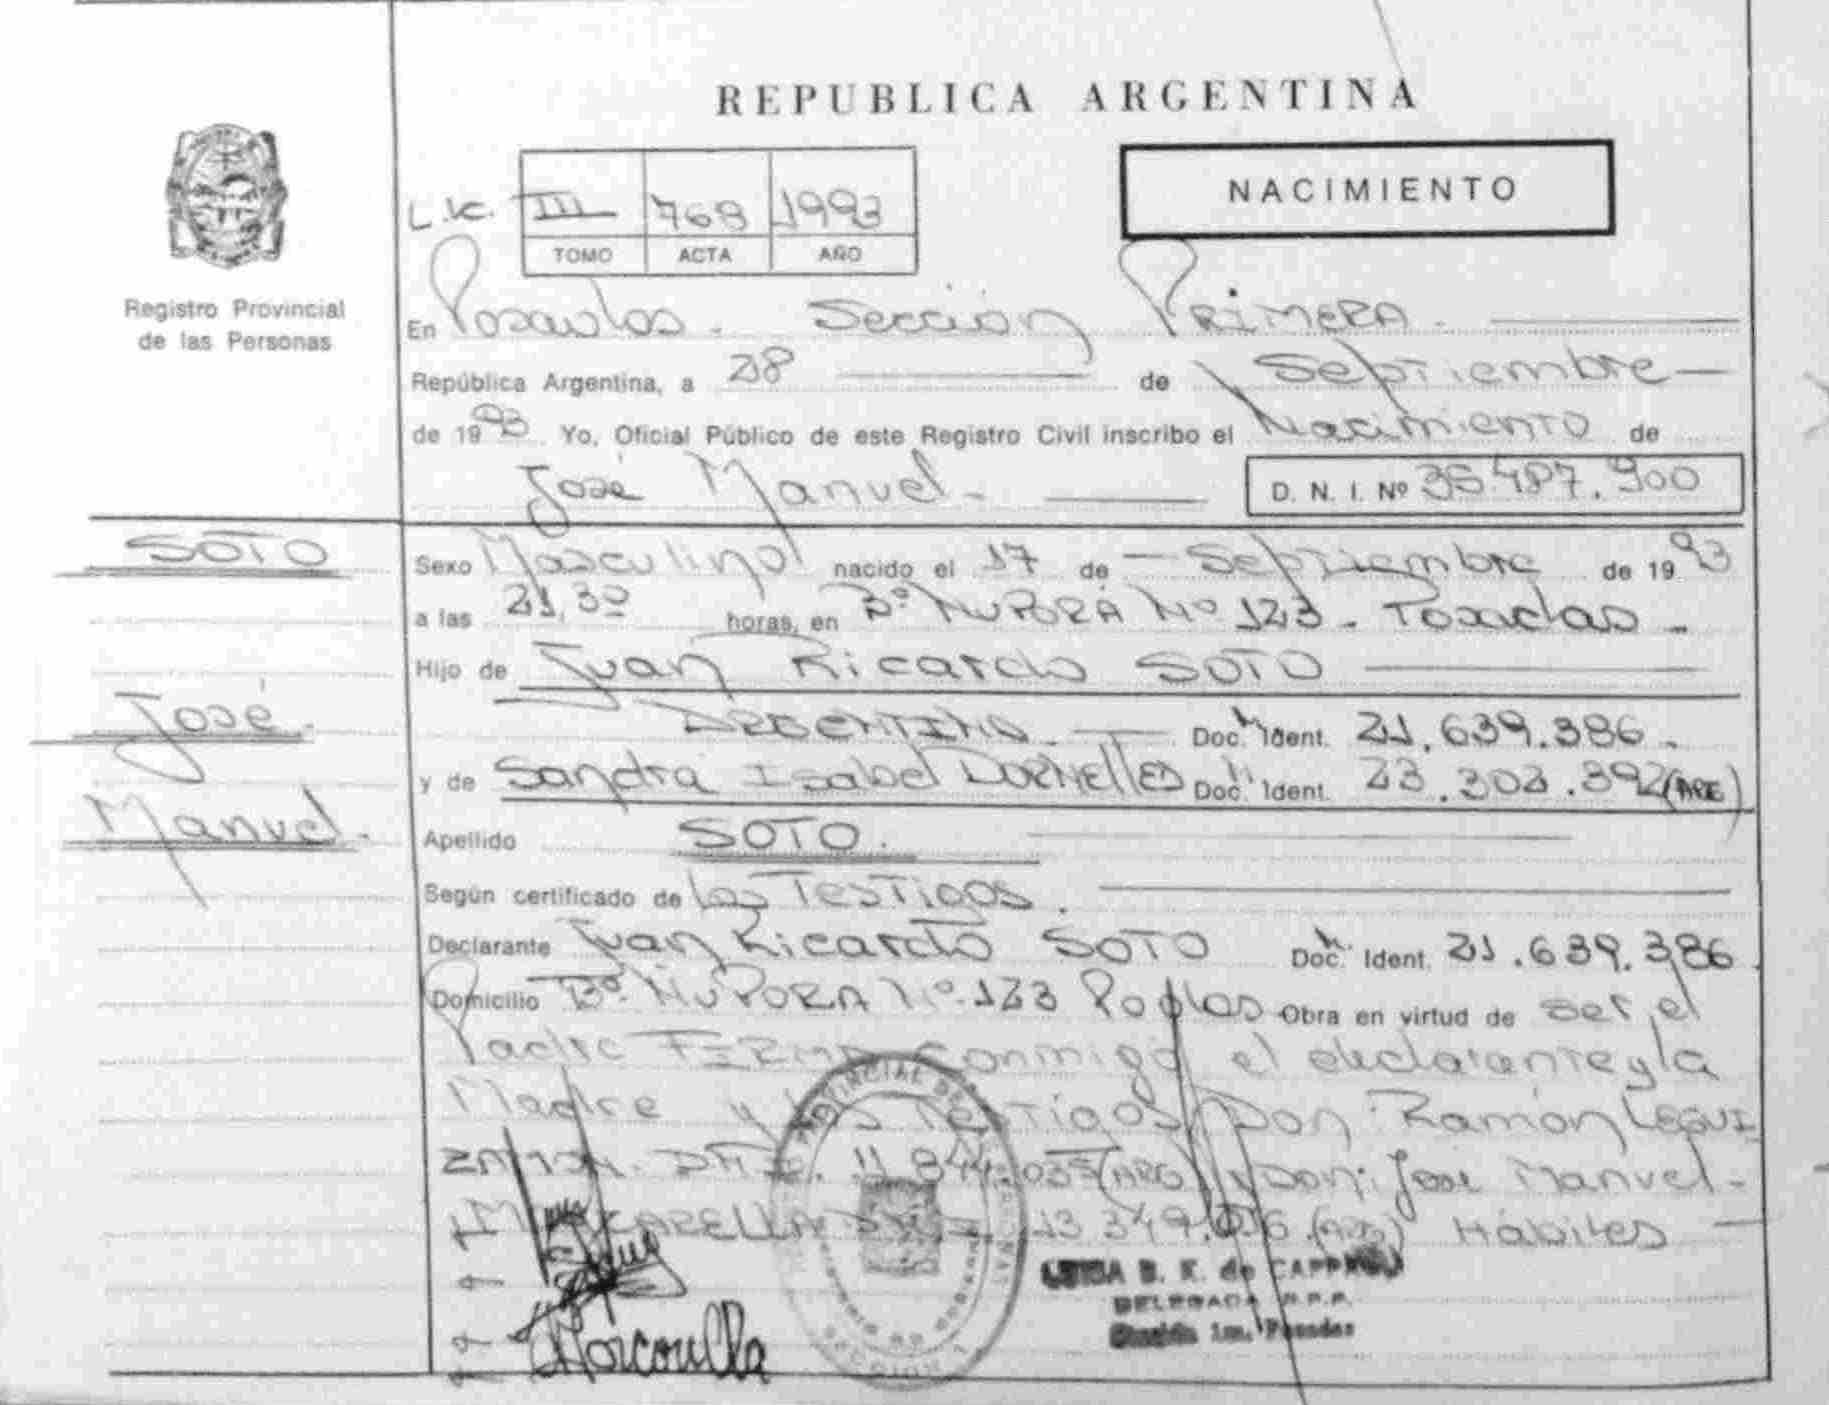 REPUBLICA ARGENTINA
NACIMIENTO
III 768 1993
TOMO ACTA AÑO
Registro Provincial
de las Personas
En Posadas. Sección PRIMERA.
República Argentina, a 28 de Septiembre
de 1993 Yo, Oficial Público de este Registro Civil inscribo el Nacimiento de
José Manuel
D. N. I. Nº 487.900
SOTO
José
Manuel.
Sexo Masculino nacido el 17 de Septiembre de 1993
a las 21,30 horas, en Bº Nº 123 - Posadas -
Hijo de Juan Ricardo SOTO
ARGENTINO Doc. Ident. 21.639.386.
y de Sandra Isabel DORNELLES Doc. Ident. 23.303.392 (ARG)
Apellido SOTO.
Según certificado de los TesTigos.
Declarante Juan Ricardo SOTO Doc. Ident. 21.639.386
Domicilio Bº. Nº 123 Obra en virtud de ser el
Padre FIRMA conmigo el declarante y la
Madre y los TesTigos Don: Ramón LEGUI
ZAMON. 11.844.035 (ARG) y Don: José Manuel
13.349. (ARG) Hábiles
de CAPPELLI
DELEGADA R.P.P.
Sección 1ra. Posadas
SECCION 1